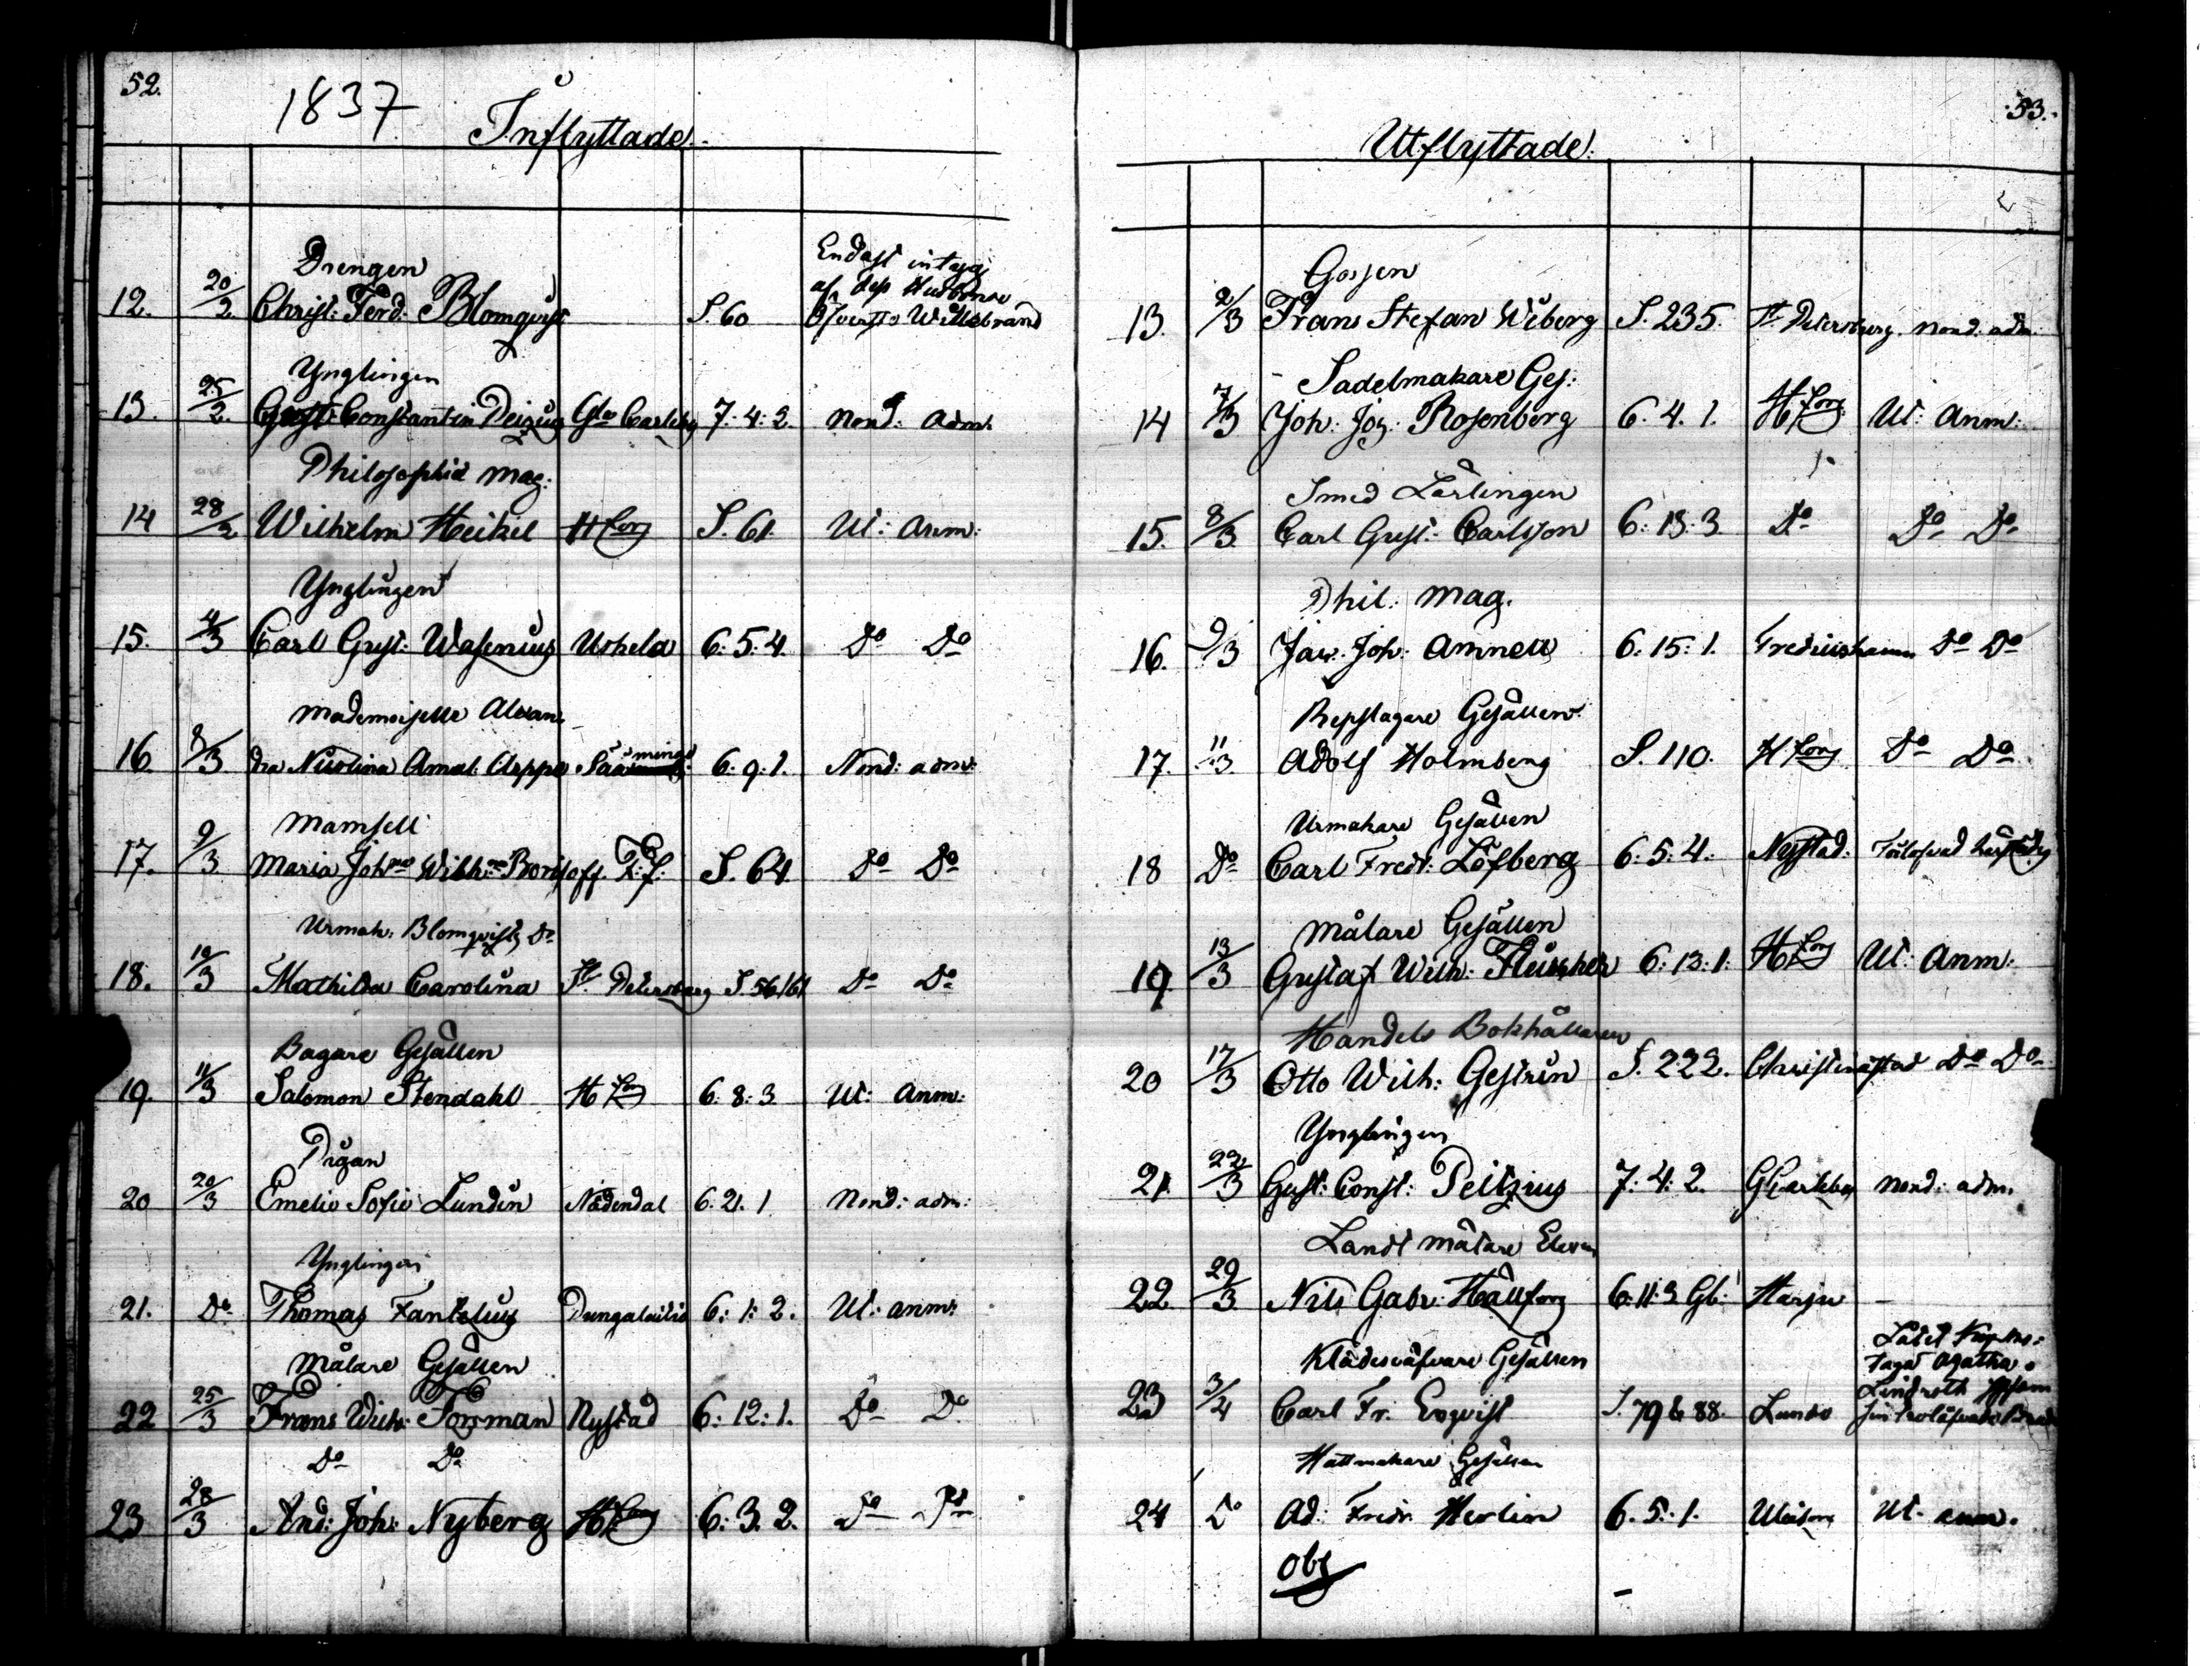 52.
1837
Inflyttade.
Drengen
Endast intyg
af dess Husbonde
Öfverste Willebrand
12. 20/2 Christ: Ferd: Blomqvist S. 60
Ynglingen
13. 25/2. Gust: Constantin Peizius Gla Carleby 7. 4: 2. Nend: adm.
Philosophiæ Mag:
14 28/2 Wilhelm Heikel Hfors S. 61. Ut: anm:
Ynglingen
15. 4/3 Carl Gust: Wasenius Uskela 6: 5: 4. Do Do
Mademoiselle Alexan
16. 8/3 dra Nicolina Amal: Aeppe Sääminge 6: 9: 1. Nend: adm:
Mamsell
17. 9/3 Maria Johna Wilh:na Borisoff T:f: S. 64. Do Do
Urmak: Blomqvists Dr
18. 10/3 Mathilda Carolina St Petersburg S. 56/61 Do Do
Bagare Gesällen
19. 11/3 Salomon Stendahl Hfors 6: 8: 3. Ut: Anm:
Pigan
20 20/3 Emelie Sofie Lundin Nådendal 6: 21. 1 Nend: adm:
Ynglingen
21. Do Thomas Fantelius Pungalaitio 6: 1: 2. Ut: anm:
Målare Gesällen
22 25/3 Frans Wilh: Forsman Nystad 6: 12: 1. Do Do
Do Do
23 28/3 And: Joh: Nyberg Hfors 6: 3. 2. Do Do
53.
Utflyttade.
Gossen
13. 2/3 Frans Stefan Wiberg S. 235. St Petersburg. Nend: adm:
Sadelmakare Ges:
14 7/3 Joh: Jos: Rosenberg 6. 4. 1. Hfors Ut: Anm:
Smed Lärlingen
15. 8/3 Carl Gust: Carlsson 6: 13: 3 Do Do Do
Phil: Mag.
16. 9/3 Jac: Joh: Amnell 6: 15: 1. Fredrikshamn Do Do
Repslagare Gesällen
17. 11/3 Adolf Holmberg S. 110. Hfors Do Do
Urmakare Gesällen
18 Do Carl Fredr: Löfberg 6: 5: 4. Nystad:
Målare Gesällen
19 13/3 Gustaf Wilh: Fleischer 6: 13: 1: Hfors Ut: Anm:
Handels Bokhållaren
20 17/3 Otto Wilh: Gestrin S. 222. Christinæstad Do Do
Ynglingen
21 22/3 Gust: Const: Peitzius 7: 4: 2. GCarleby Nend: adm.
Landt mätare Eleven
22 29/3 Nils Gabr: Hällfors 6: 11: 3 Gl: Harju –
Klädesväfvare Gesällen
tagit Agatha
Lindroth
23 3/4 Carl Fr: Enqvist S. 79 & 88. Lundo
Hattmakare Gesällen
24 Do Ad: Fredr. Herlin 6. 5. 1. Ut: anm.
Obs